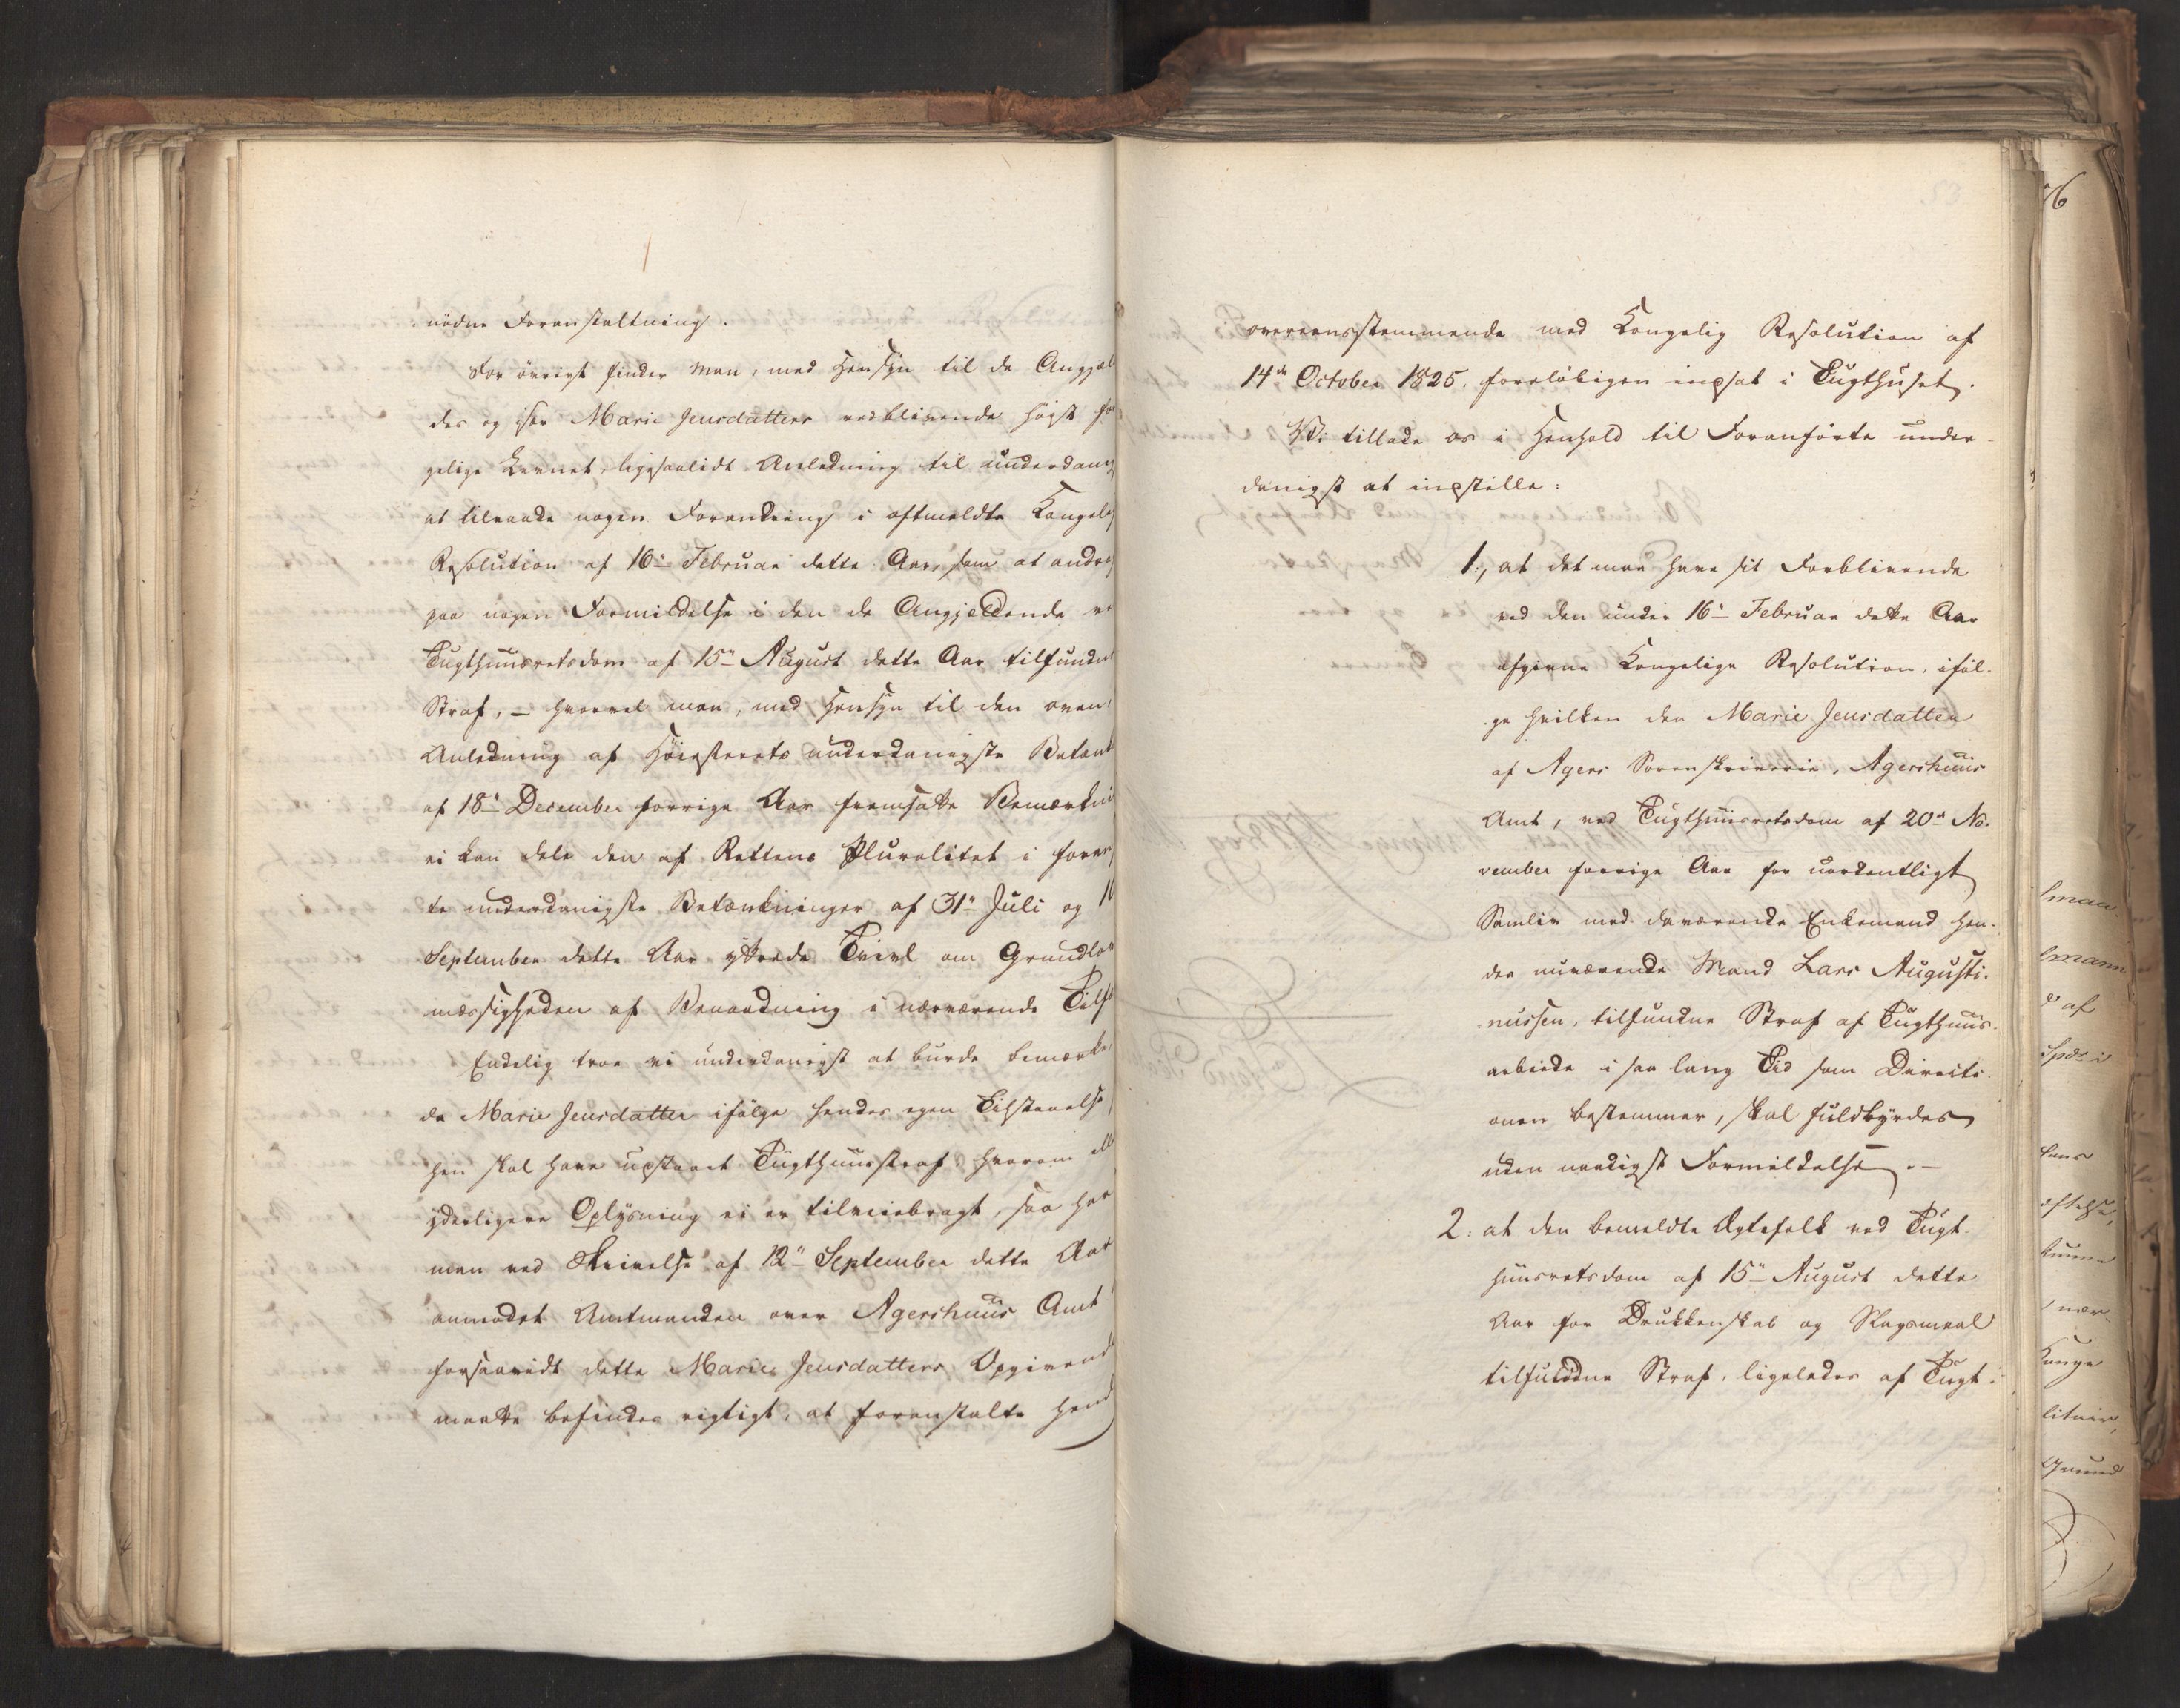 nødne Foranstaltning.
For øvrigt finder man, med Hensyn til de Angjæl
des og især Marie Jensdatters vedblivende høist for
gelige Levnet, ligesaalidt Anledning til underdanig
at tilraade nogen Forandring i oftmeldte Kongelig
Resolution af 16de Februar dette Aar, som at andrag
paa nogen Formildelse i den de Angjældende ve
Tugthuusretsdom af 15de August dette Aar tilfundne
Straf, – hvorvel man, med Hensyn til den oven
Anledning af Høiesterets underdanigste Betænk
af 18de December forrige Aar fremsatte Bemærkni
ei kan dele den af Rettens Pluralitet i foran
te underdanigste Betænkninger af 31te Juli og 10
September dette Aar yttrede Tvivl om Grundlov
mæssigheden af Benaadning i nærværende Tilf
Endelig troe vi underdanigst at burde bemærke
da Marie Jensdatter ifølge hendes egen Tilstaaelse
hen skal have udstaaet Tugthuusstraf, hvorom all
yderligere Oplysning ei er tilveiebragt, saa har
man ved Skrivelse af 12te September dette Aar
anmodet Amtmanden over Agershuus Amt
forsaavidt dette Marie Jensdatters Opgivende
maatte befindes rigtigt, at foranstalte hend
overeensstemmende med Kongelig Resolution af
14de October 1825. foreløbigen indsat i Tugthuset.
Vi tillade os i Henhold til Foranførte under-
danigst at indstille:
1., at det maa have sit Forblivende
ved den under 16de Februar dette Aar
afgivne Kongelige Resolution, iføl-
ge hvilken den Marie Jensdatter
af Agers Sorenskriverie, Agershuus
Amt, ved Tugthuusretsdom af 20de No-
vember forrige Aar for uordentligt
Samliv med daværende Enkemand hen-
des nuværende Mand Lars Augusti-
nussen, tilfundne Straf af Tugthuus-
arbeide i saa lang Tid som Directi-
onen bestemmer, skal fuldbyrdes
uden naadigst Formildelse. –
2: at den bemeldte Ægtefolk ved Tugt-
huusretsdom af 15de August dette
Aar for Drukkenskab og Slagsmaal
tilfundne Straf, ligeledes af Tugt-